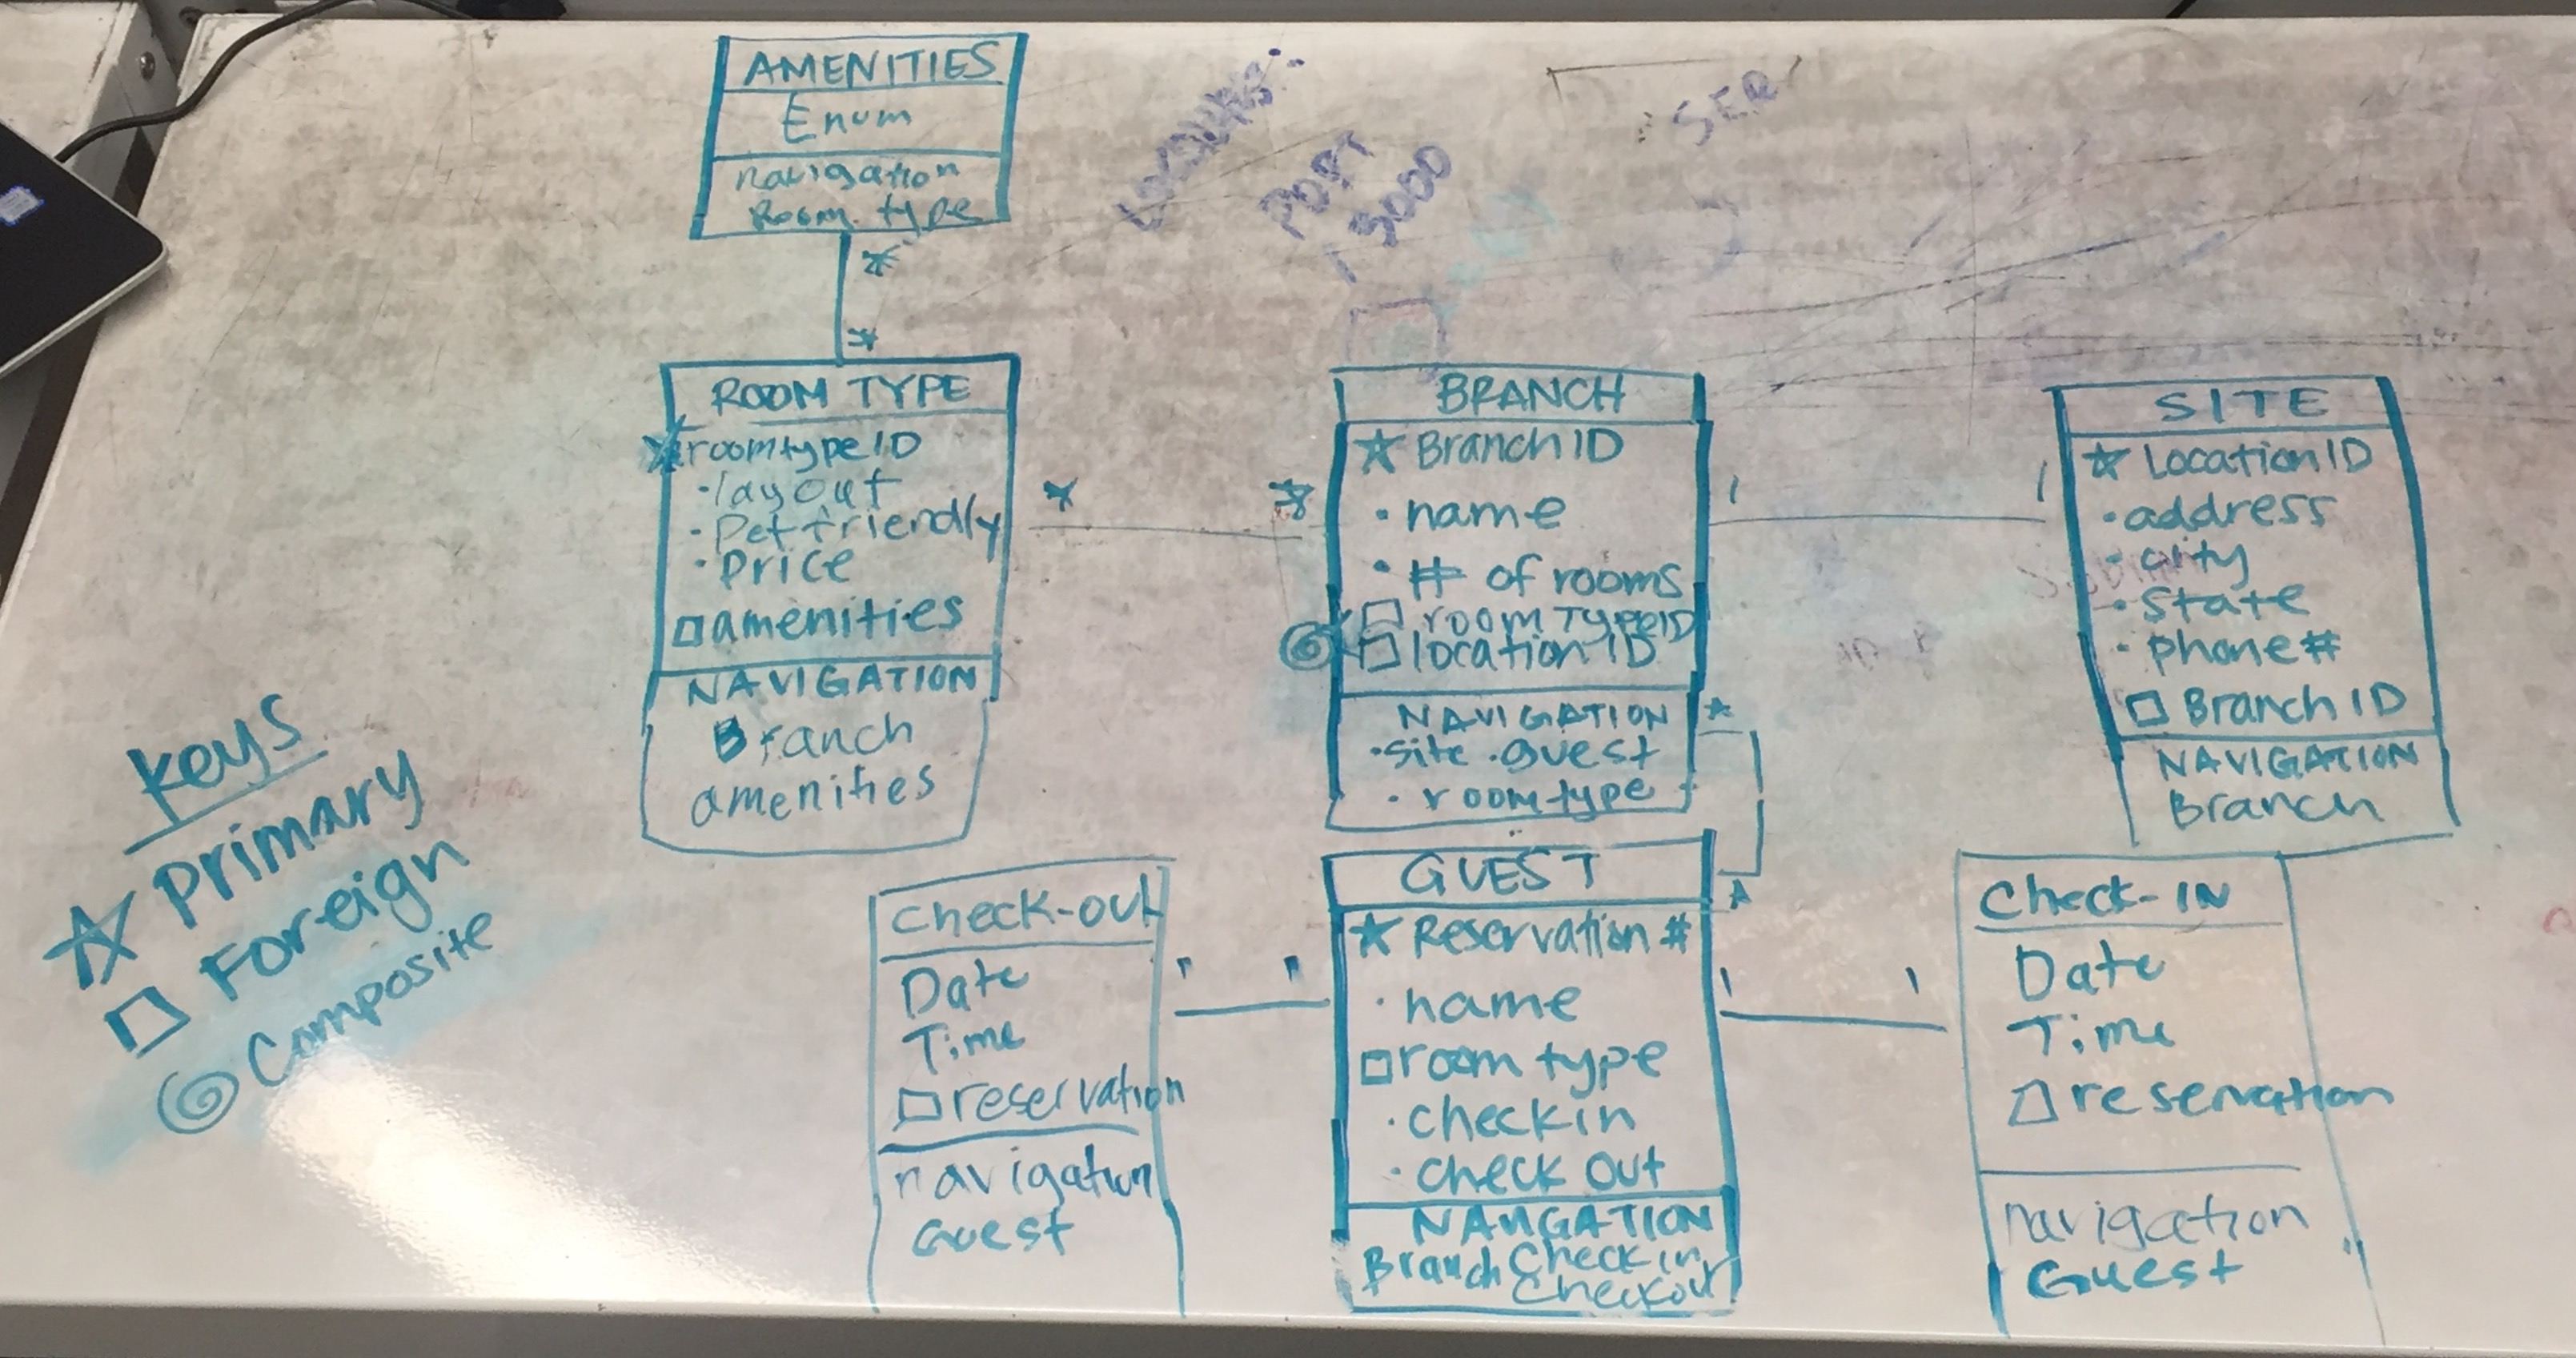 AMENITIES
Enum
navigation
Room type
*
*
ROOM TYPE
☆ roomtype ID
· layout
· Pet friendly
· Price
□ amenities
NAVIGATION
Branch
amenities
* *
BRANCH
☆ Branch ID
· name
· # of rooms
□ room TYPE ID
□ location ID
NAVIGATION
· site · guest
· roomtype
1 1
SITE
☆ Location ID
· address
· city
· state
· phone #
□ Branch ID
NAVIGATION
Branch
*
*
keys
☆ Primary
□ Foreign
Composite
Check-out
Date
Time
□ reservation
navigation
Guest
1 1
GUEST
☆ Reservation #
· name
□ room type
· checkin
· check out
NAVIGATION
Branch Check in
Checkout
1 1
Check-IN
Date
Time
□ reservation
navigation
Guest
PORT
3000
SER